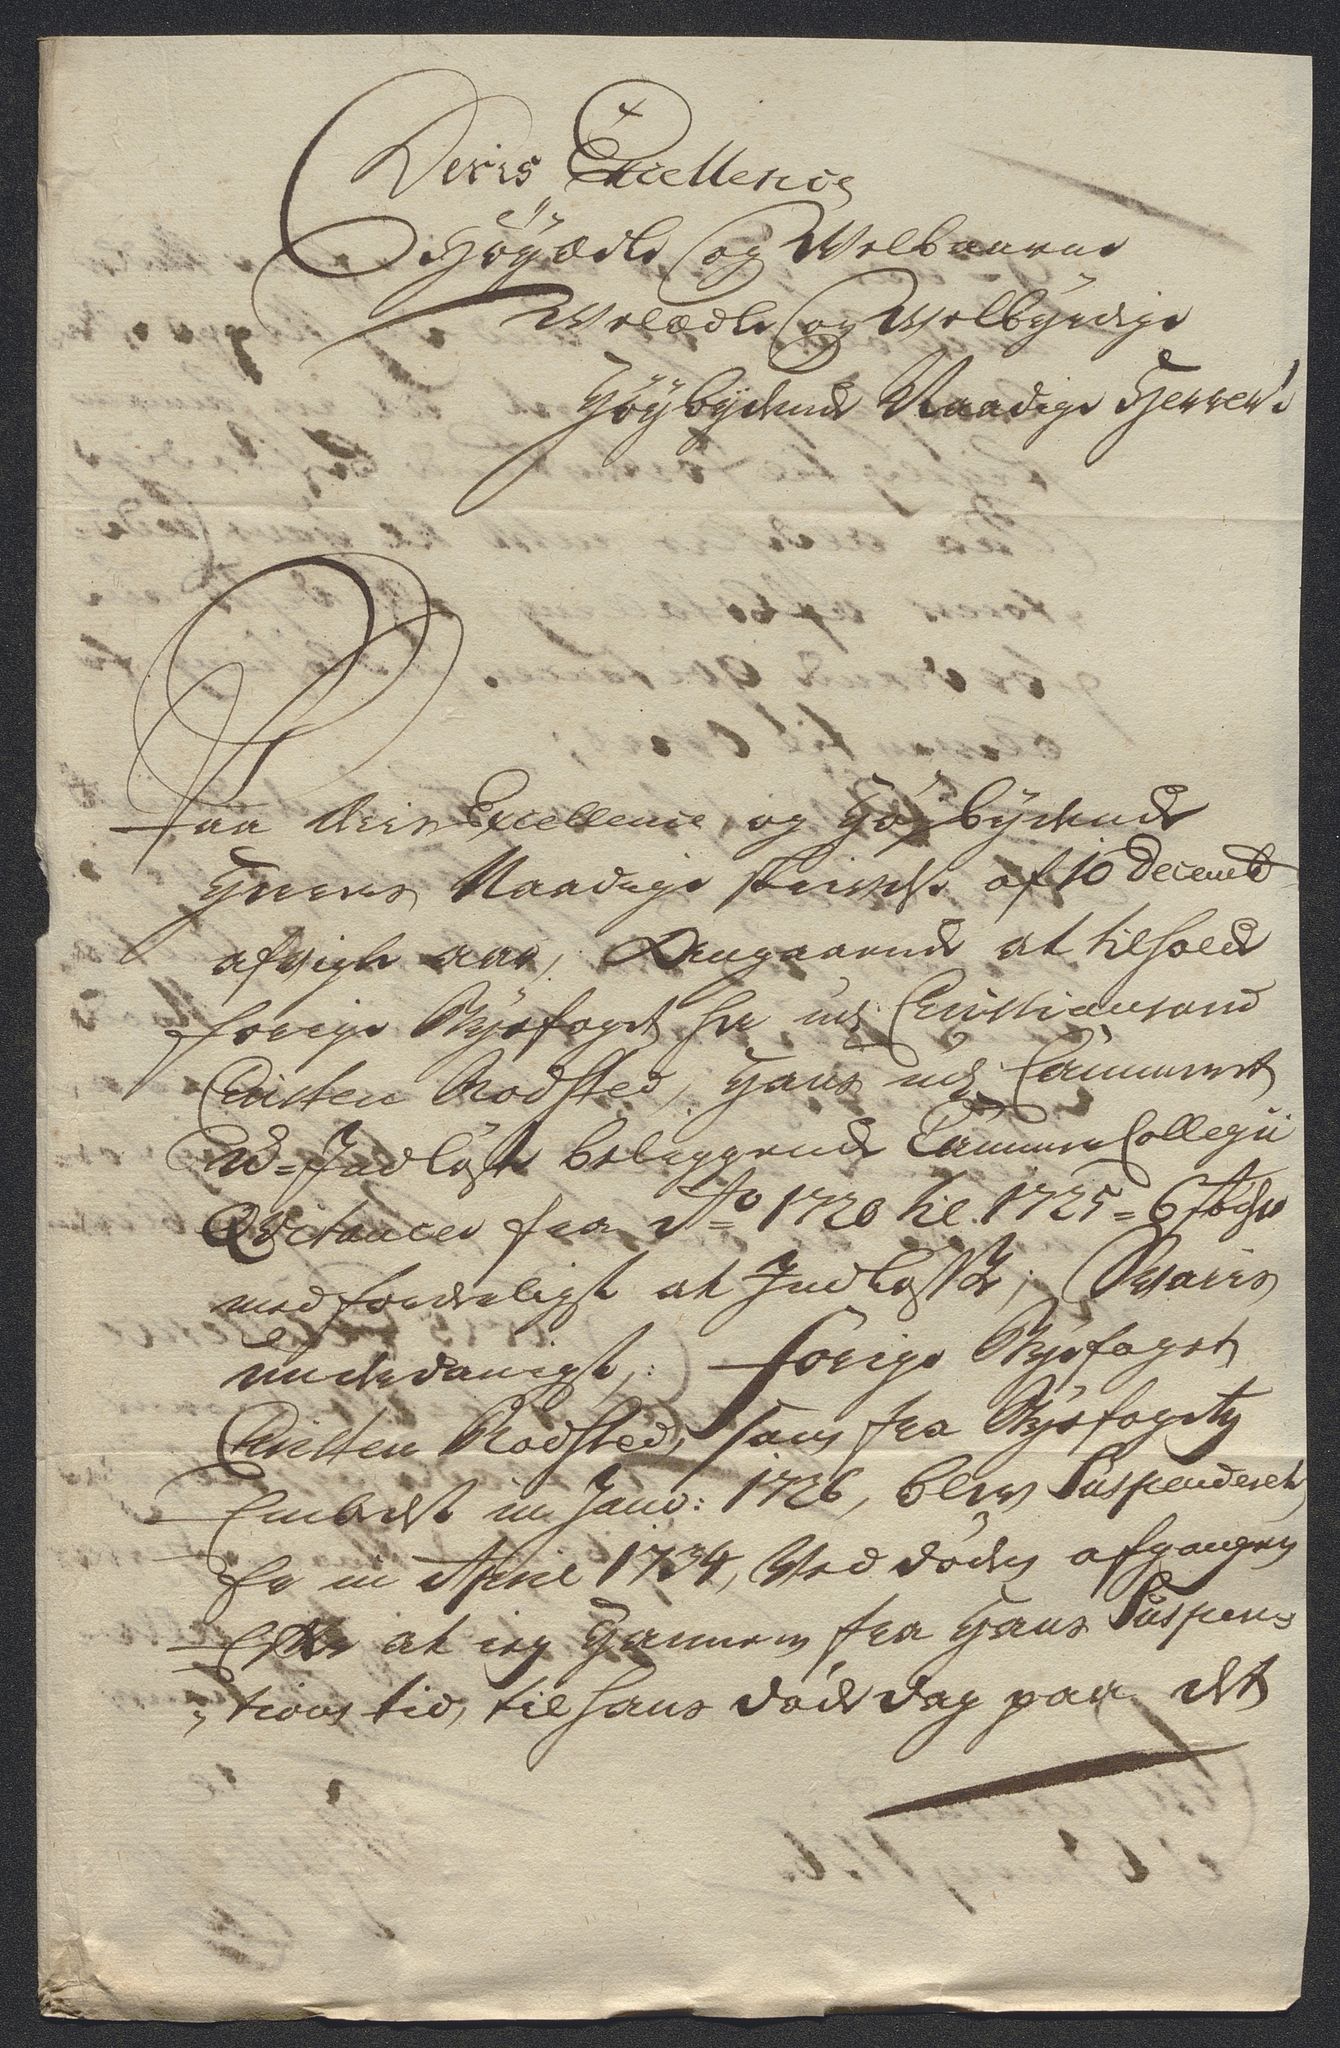 Deris Excellence
Höyædle og Welbaarne
Welædle og Welbyrdige
Höybydende Naadige Herrer
Paa Deris Excellence, og Höybydende
Herrers Naadige skrivelse af 10 Decemb
afvigte aar, Angaaende at tilholde
forige Byefoget her udj Christiansand
Christen Rodsted, Hans udj Cammeret
U-Indløste beliggende Cammer Collegii
Qvitancer fra Ao 1720 til 1725 = 6 stker
med forderligst at Indløse; Svaris
underdanigst, forige Byefoget
Christen Rodsted, som fra Byefogets
Embedet in Janv: 1726, blev Suspenderet,
Er in April 1734, Ved døden afgangen
Efter at jeg Hannem fra Hans Suspen-
tions tid, til hans døde dag paa det